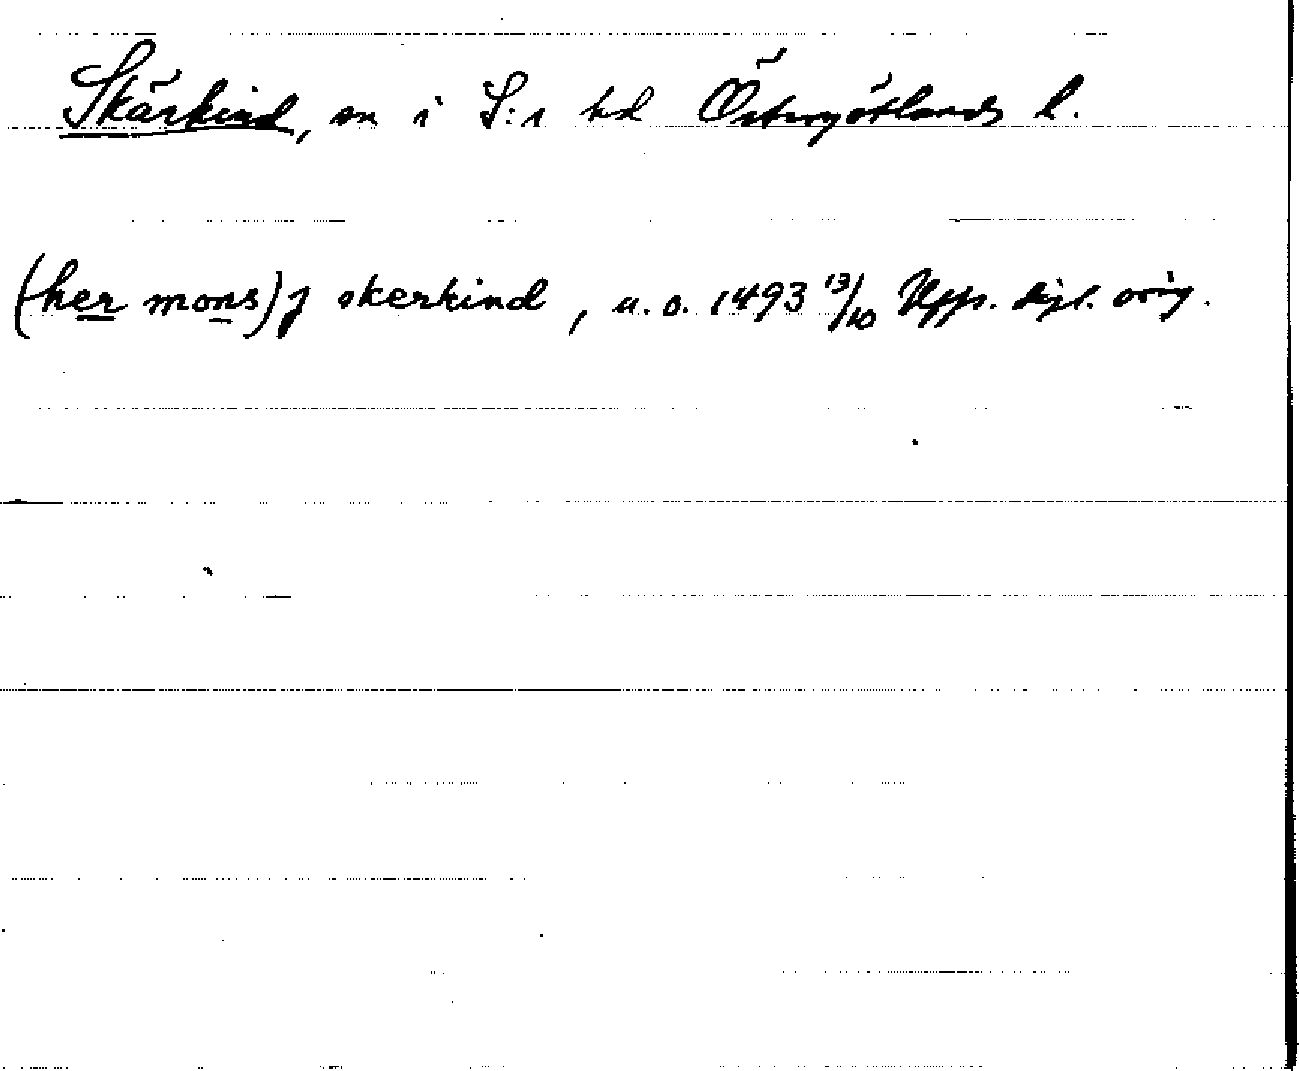 Skärkind, sn i S:a hd Östergötlands l.
(her mons) j skerkind, u.o. 1493 13/10 Upps. dipl. orig.